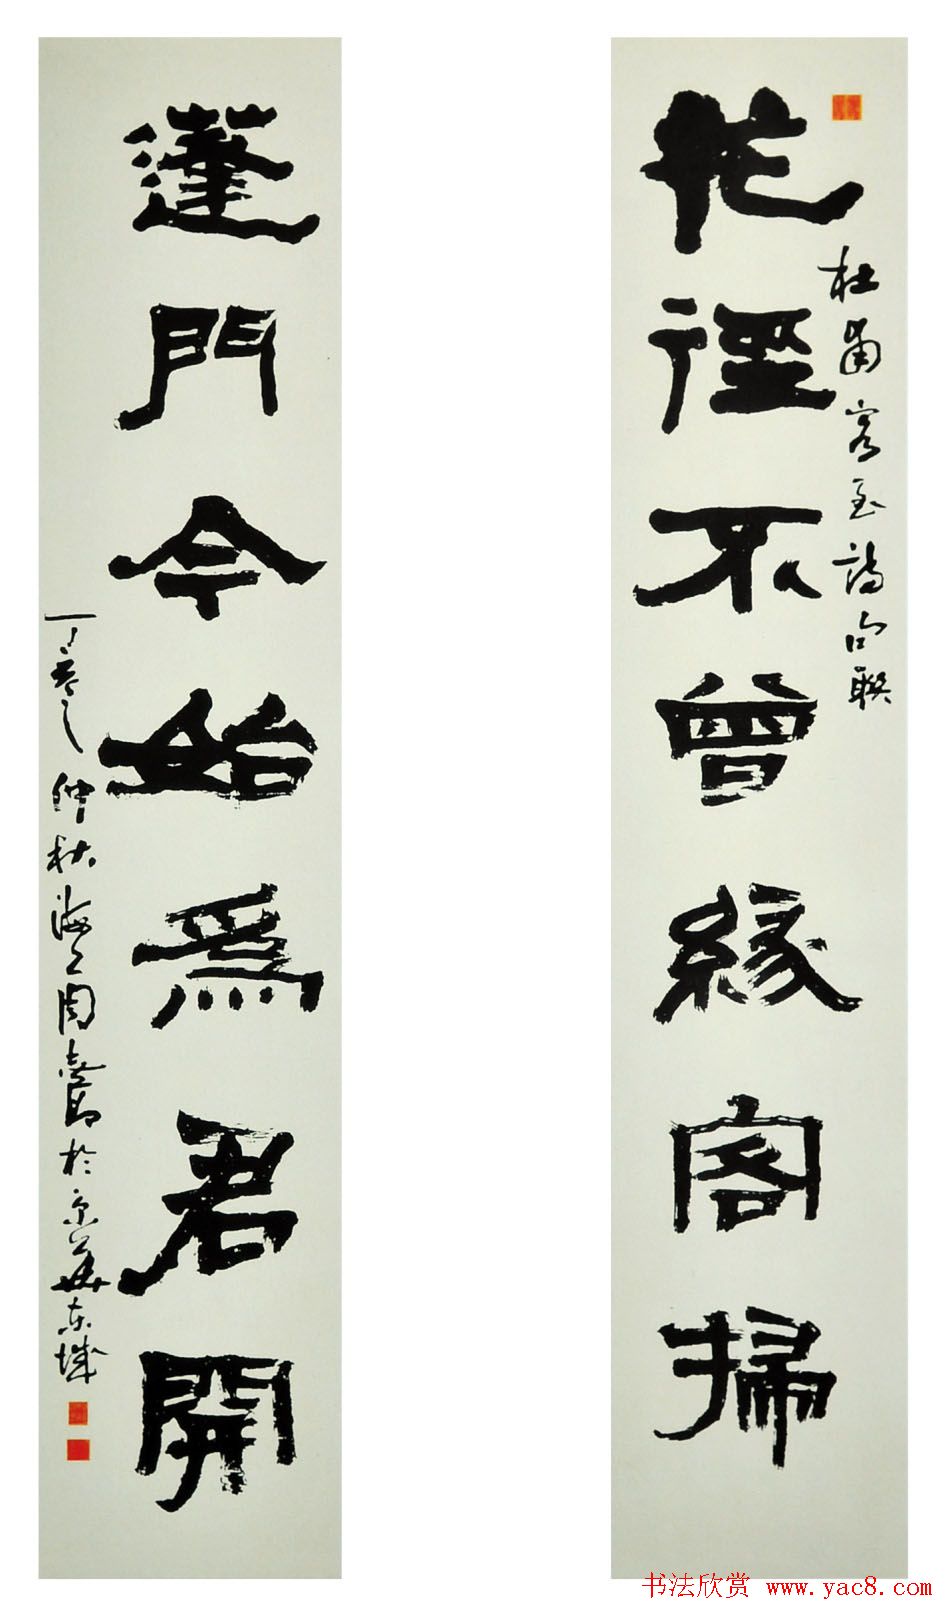 花徑不曾緣客掃
杜甫客至詩句聯
蓬門今始為君開
丁亥仲秋海上周慧珺於京華東城
书法欣赏 www.yac8.com